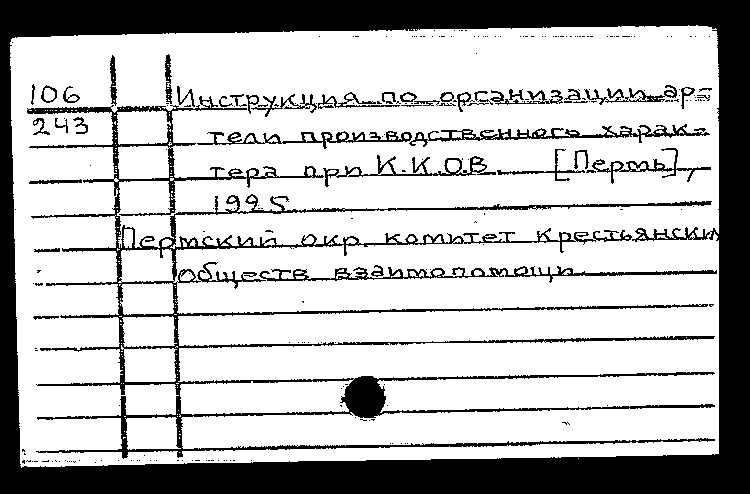 106 Инструкция по организации ар=
243 тели производственного харак=
тера при К.К.О.В. [Пермь],
1925
Пермский окр. комитет крестьянски
обществ взаимопомощи